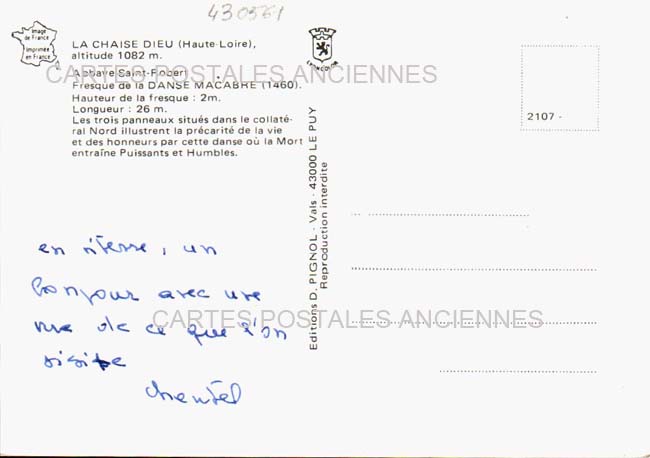 430561
Image
de France
Imprimée
en France
LA CHAISE DIEU (Haute-Loire),
altitude 1082 m.
Abbaye Saint-Robert
Fresque de la DANSE MACABRE (1460).
Hauteur de la fresque : 2m.
Longueur : 26 m.
Les trois panneaux situés dans le collaté-
ral Nord illustrent la précarité de la vie
et des honneurs par cette danse où la Mort
entraîne Puissants et Humbles.
CARTES POSTALES ANCIENNES
LYONCOLOR
2107 -
Editions D. PIGNOL - Vals - 43000 LE PUY
Reproduction interdite
en vitesse, un
bonjour avec une
vue de ce que l'on
visite
Chantal
CARTES POSTALES ANCIENNES